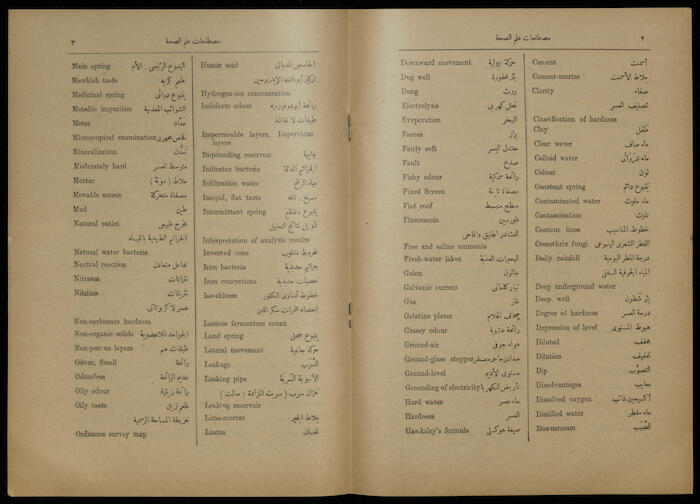 ٢ مصطلحات علم الصحة
Cement أسمنت
Cement-mortar ملاط الأسمنت
Clarity صفاء
تصنيف العسر
Classification of hardness
Clay طَفْل
Clear water ماء صاف
Colloid water
Colour لون
Constant spring ينبوع دائم
Contaminated water ماء ملوث
Contamination تلوث
Contour lines خطوط المناسيب
Crenethrix fungi
Daily rainfall درجة المطر اليومية
المياه الجوفية السفلى
Deep underground water
Deep well
Degree of hardness درجة العسر
Depression of level هبوط المستوى
Diluted مخفف
Dilution تخفيف
Dip
Disadvantages معايب
Dissolved oxygen أكسيجين ذائب
Distilled water ماء مقطر
Downstream
Downward movement حركة نزولية
Dug well بئر محفورة
Dung روث
Electrolysis تحلل كهربى
Evaporation التبخر
Faeces براز
Fairly soft معتدل اليسر
Fault صدع
Fishy odour رائحة سمكية
Fixed Screen مصفاة ثابتة
Flat roof سطح منبسط
Fluorescein فلورسين
النشادر الطليق والملحى
Free and saline ammonia
Fresh-water lakes البحيرات العذبة
Galon جالون
Galvanic current تيار كلفانى
Gas غاز
Gelatine plates صحاف الهلام
Grassy odour رائحة عشبية
Ground-air هواء جوفى
Ground-glass stopper
Ground-level مستوى الأديم
Grounding of electricity تأريض الكهربا
Hard water ماء عسر
Hardness العسر
Hawksley's formula صيغة هوكسلى
٣ مصطلحات علم الصحة
Humic acid الحامض الدبالى
تركيز أيونات الإيدروجين
Hydrogen-ion concentration
Iodoform odour رائحة أيودوفورمية
طبقات لا نفاذة
Impermeable layers, Impervious
layers
Impounding reservoir جابية
Indicator bacteria الجراثيم الدالة
Infiltration water
Insipid, flat taste مسيخ ، تافه
Intermittent spring ينبوع متقطع
تأويل نتائج التحليل
Interpretation of analysis results
Inverted cone مخروط مقلوب
Iron bacteria جراثيم حديدية
Iron concretions
Iso-chlores خطوط تساوى الكلور
إحصاء مخمرات سكر اللبن
Lactose fermentors count
Land spring ينبوع سطحى
Lateral movement حركة جانبية
Leakage السَّرَب
Leaking pipe الأنبوبة السَّربة
خزان سرب ( سربت المزادة : سالت )
Leaking reservoir
Lime-mortar ملاط الجير
Lustre لمعان
Main spring الينبوع الرئيسى ، الأم
Mawkish taste طعم كريه
Medicinal spring ينبوع دوائى
Metallic impurities الشوائب المعدنية
Meter عدّاد
Microscopical examination فحص مجهرى
Mineralization تمعدن
Moderately hard متوسط العسر
Mortar ملاط ( مونة )
Movable screen مصفاة متحركة
Mud طين
Natural outlet مخرج طبيعى
الجراثيم الطبيعية بالمياه
Natural water bacteria
Neutral reaction تفاعل متعادل
Nitrates نترانات
Nitrites نتريتات
عسر لا كربوناتى
Non-carbonate hardness
Non-organic solids الجوامد اللاعضوية
Non-porous layers
Odour, Smell رائحة
Odourless عديم الرائحة
Oily odour رائحة زيتية
Oily taste طعم زيتى
خريطة المساحة الرسمية
Ordnance survey map